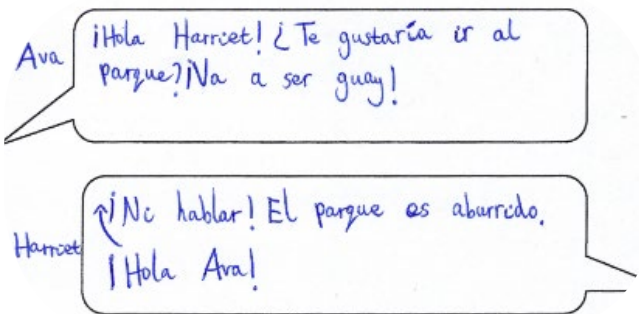 Ava
¡Hola Harriet! ¿Te gustaría ir al
parque? ¡Va a ser guay!
Harriet
¡Ni hablar! El parque es aburrido.
¡Hola Ava!